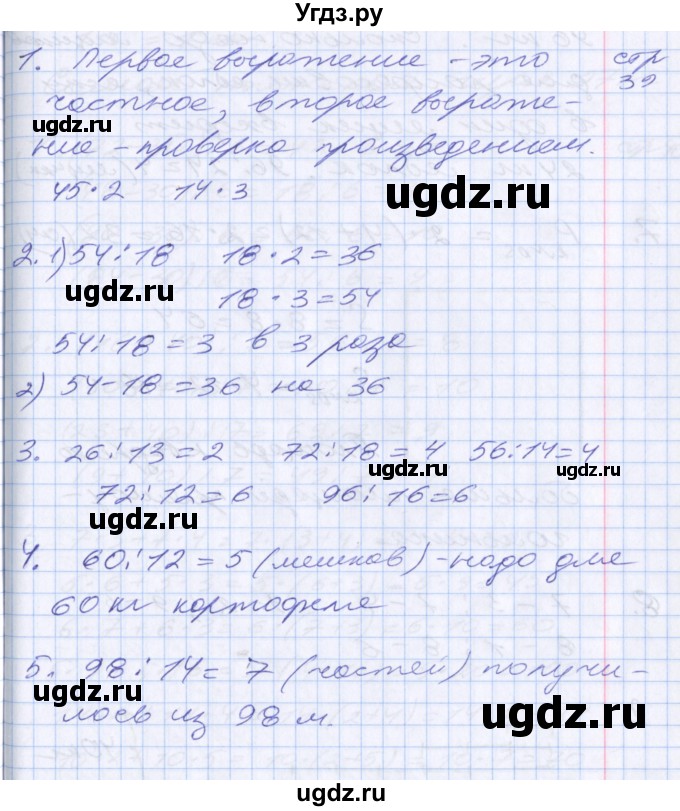 Угдз.ру
1. Первое выражение - это стр
частное, второе выраже- 39
ние - проверка произведением.
45·2 14·3
2. 1) 54:18 18·2=36
18·3=54
54:18=3 в 3 раза
2) 54-18=36 на 36
3. 26:13=2 72:18=4 56:14=4
72:12=6 96:16=6
4. 60:12=5 (мешков) - надо для
60 кг картофеля
5. 98:14=7 (частей) получи-
лось из 98 м.
ugdz.ru
ugdz.ru
ugdz.ru
ugdz.ru
ugdz.ru
ugdz.ru
ugdz.ru
ugdz.ru
ugdz.ru